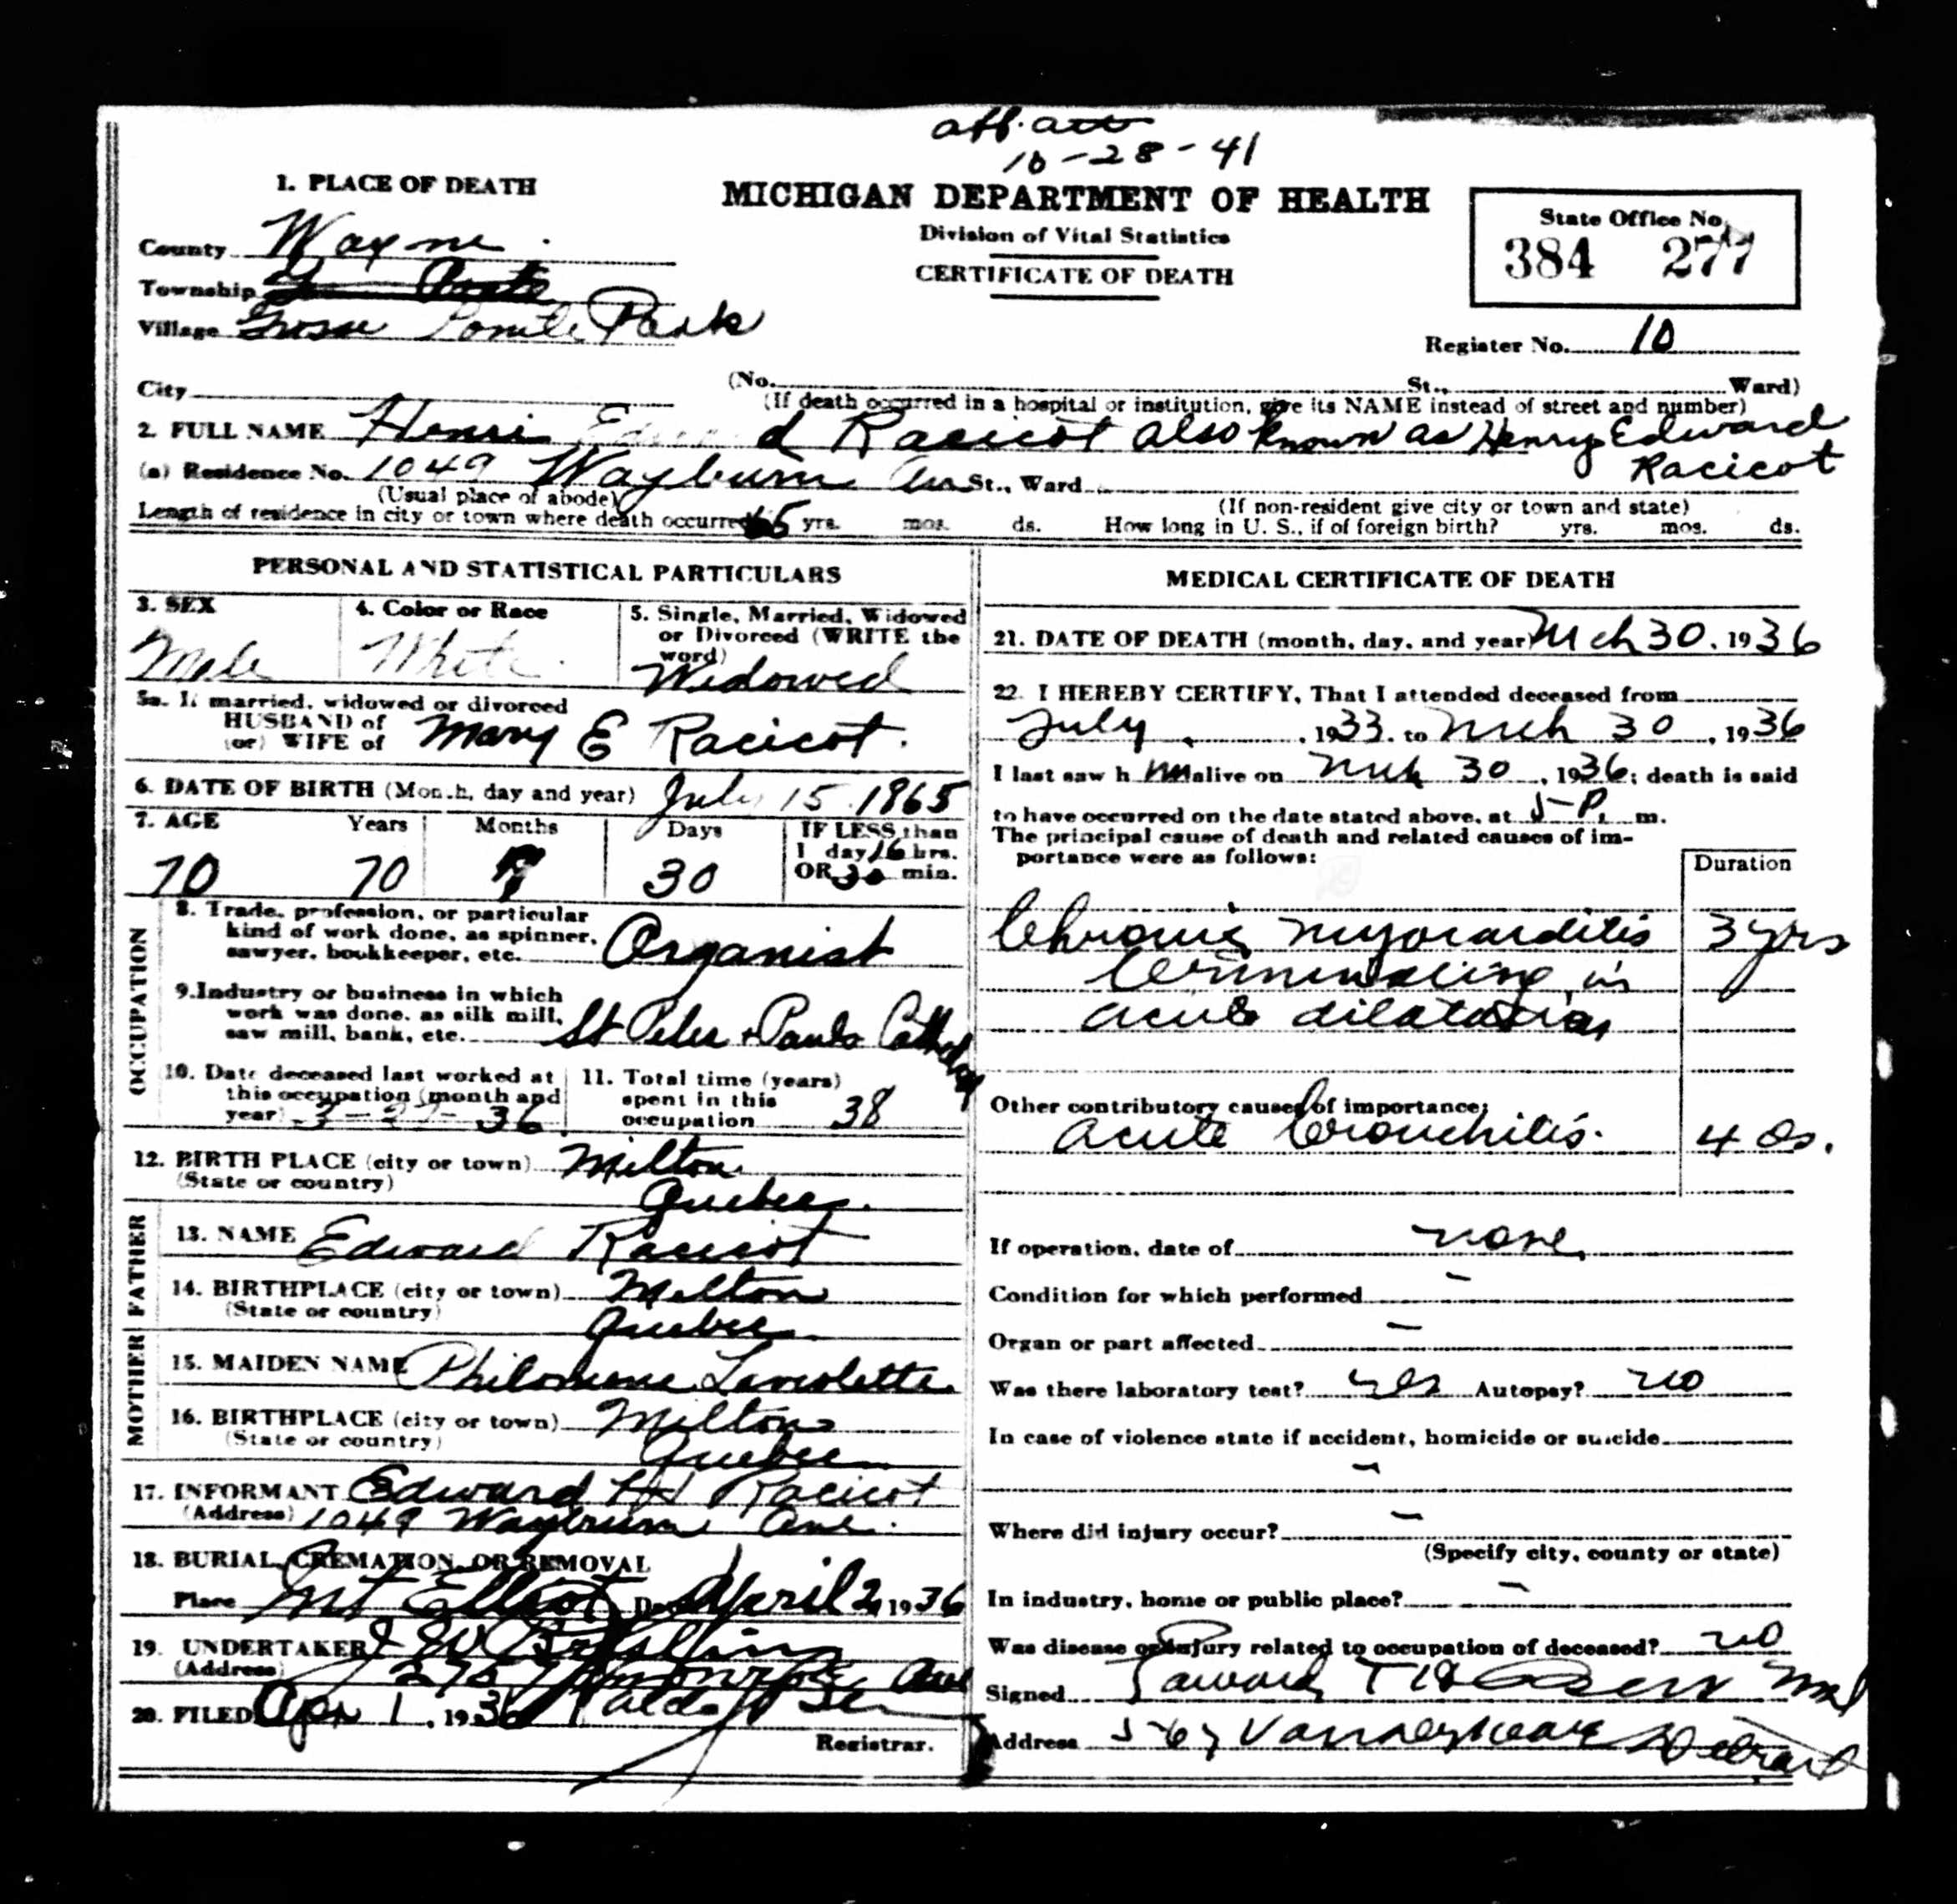 aff. att
10-28-41
1. PLACE OF DEATH
MICHIGAN DEPARTMENT OF HEALTH
Division of Vital Statistics
CERTIFICATE OF DEATH
State Office No.
384 277
County Wayne
Township
Village Grosse Pointe Park
Register No. 10
City (No. St., Ward)
(If death occurred in a hospital or institution, give its NAME instead of street and number)
2. FULL NAME Henri Edward Racicot also known as Henry Edward
Racicot
(a) Residence No. 1049 Wayburn Ave St., Ward
(Usual place of abode) (If non-resident give city or town and state)
Length of residence in city or town where death occurred yrs. mos. ds. How long in U. S., if of foreign birth? yrs. mos. ds.
PERSONAL AND STATISTICAL PARTICULARS
3. SEX
Male
4. Color or Race
White
5. Single, Married, Widowed
or Divorced (WRITE the
word)
Widowed
5a. If married, widowed or divorced
HUSBAND of
(or) WIFE of Mary E Racicot.
6. DATE OF BIRTH (Month, day and year) July 15 1865
7. AGE Years Months Days IF LESS than
1 day 16 hrs.
OR 30 min.
70 70 30
OCCUPATION
8. Trade, profession, or particular
kind of work done, as spinner,
sawyer, bookkeeper, etc. Organist
9. Industry or business in which
work was done, as silk mill,
saw mill, bank, etc. St Peter + Pauls Cathedral
10. Date deceased last worked at
this occupation (month and
year) 3-27-36
11. Total time (years)
spent in this
occupation 38
12. BIRTH PLACE (city or town) Milton
(State or country) Quebec.
FATHER
13. NAME Edward Racicot
14. BIRTHPLACE (city or town) Milton
(State or country) Quebec
MOTHER
15. MAIDEN NAME Philomene Laviolette
16. BIRTHPLACE (city or town) Milton
(State or country) Quebec
17. INFORMANT Edward Racicot
(Address) 1049 Wayburn Ave.
18. BURIAL, CREMATION OR REMOVAL
Place Mt Elliott Date April 2, 1936
19. UNDERTAKER J W
(Address) Ave
20. FILED Apr 1, 1936
Registrar.
MEDICAL CERTIFICATE OF DEATH
21. DATE OF DEATH (month, day, and year) Mch 30, 1936
22. I HEREBY CERTIFY, That I attended deceased from
July, 1933. to Mch 30, 1936
I last saw h im alive on Mch 30, 1936; death is said
to have occurred on the date stated above, at 5 P. m.
The principal cause of death and related causes of im-
portance were as follows:
Duration
Chronic myocarditis 3 yrs
terminating in
acute dilatation
Other contributory causes of importance:
acute bronchitis. 4 ds.
If operation, date of none
Condition for which performed -
Organ or part affected -
Was there laboratory test? yes Autopsy? no
In case of violence state if accident, homicide or suicide
-
Where did injury occur? -
(Specify city, county or state)
In industry, home or public place? -
Was disease or injury related to occupation of deceased? no
Signed Edward MD
Address Detroit